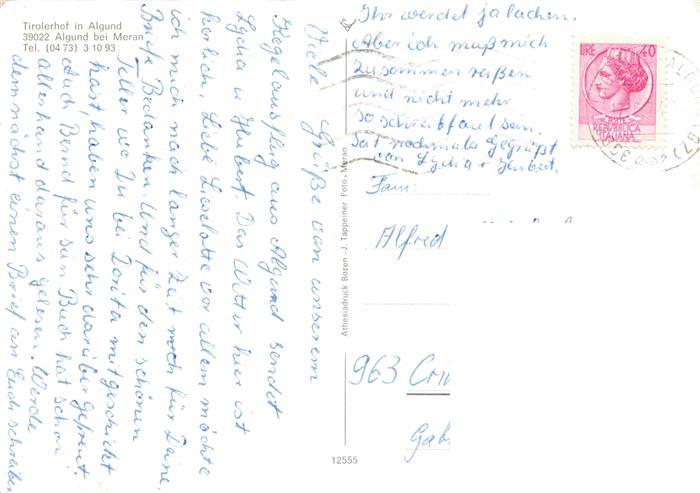 Tirolerhof in Algund
39022 Algund bei Meran
Tel. (04 73) 3 10 93
Viele Grüße von unserem
Kegelausflug aus Algund sendet
Lydia u Hubert. Das Wetter hier ist
herrlich. Liebe Liselotte vor allem möchte
ich mich nach langer Zeit noch für Deine
Briefe Bedanken. Und für den schönen
Teller wo Du bei Dorita mitgeschickt
hast, haben uns sehr darüber gefreut.
Auch Bernd für sein Buch hat schon
allerhand daraus gelesen. Werde
demnächst einen Brief an Euch schreiben
Ihr werdet ja lachen.
Aber ich muß mich
zusammen reißen
und nicht mehr
so schreibfaul sein.
Seit nochmals Gegrüßt
von Lydia + Hubert.
Athesiadruck Bozen - J. Tappeiner Foto, Meran
12555
LIRE 40
POSTE
REPUBBLICA
ITALIANA
(BZ)
Fam:
Alfred
963